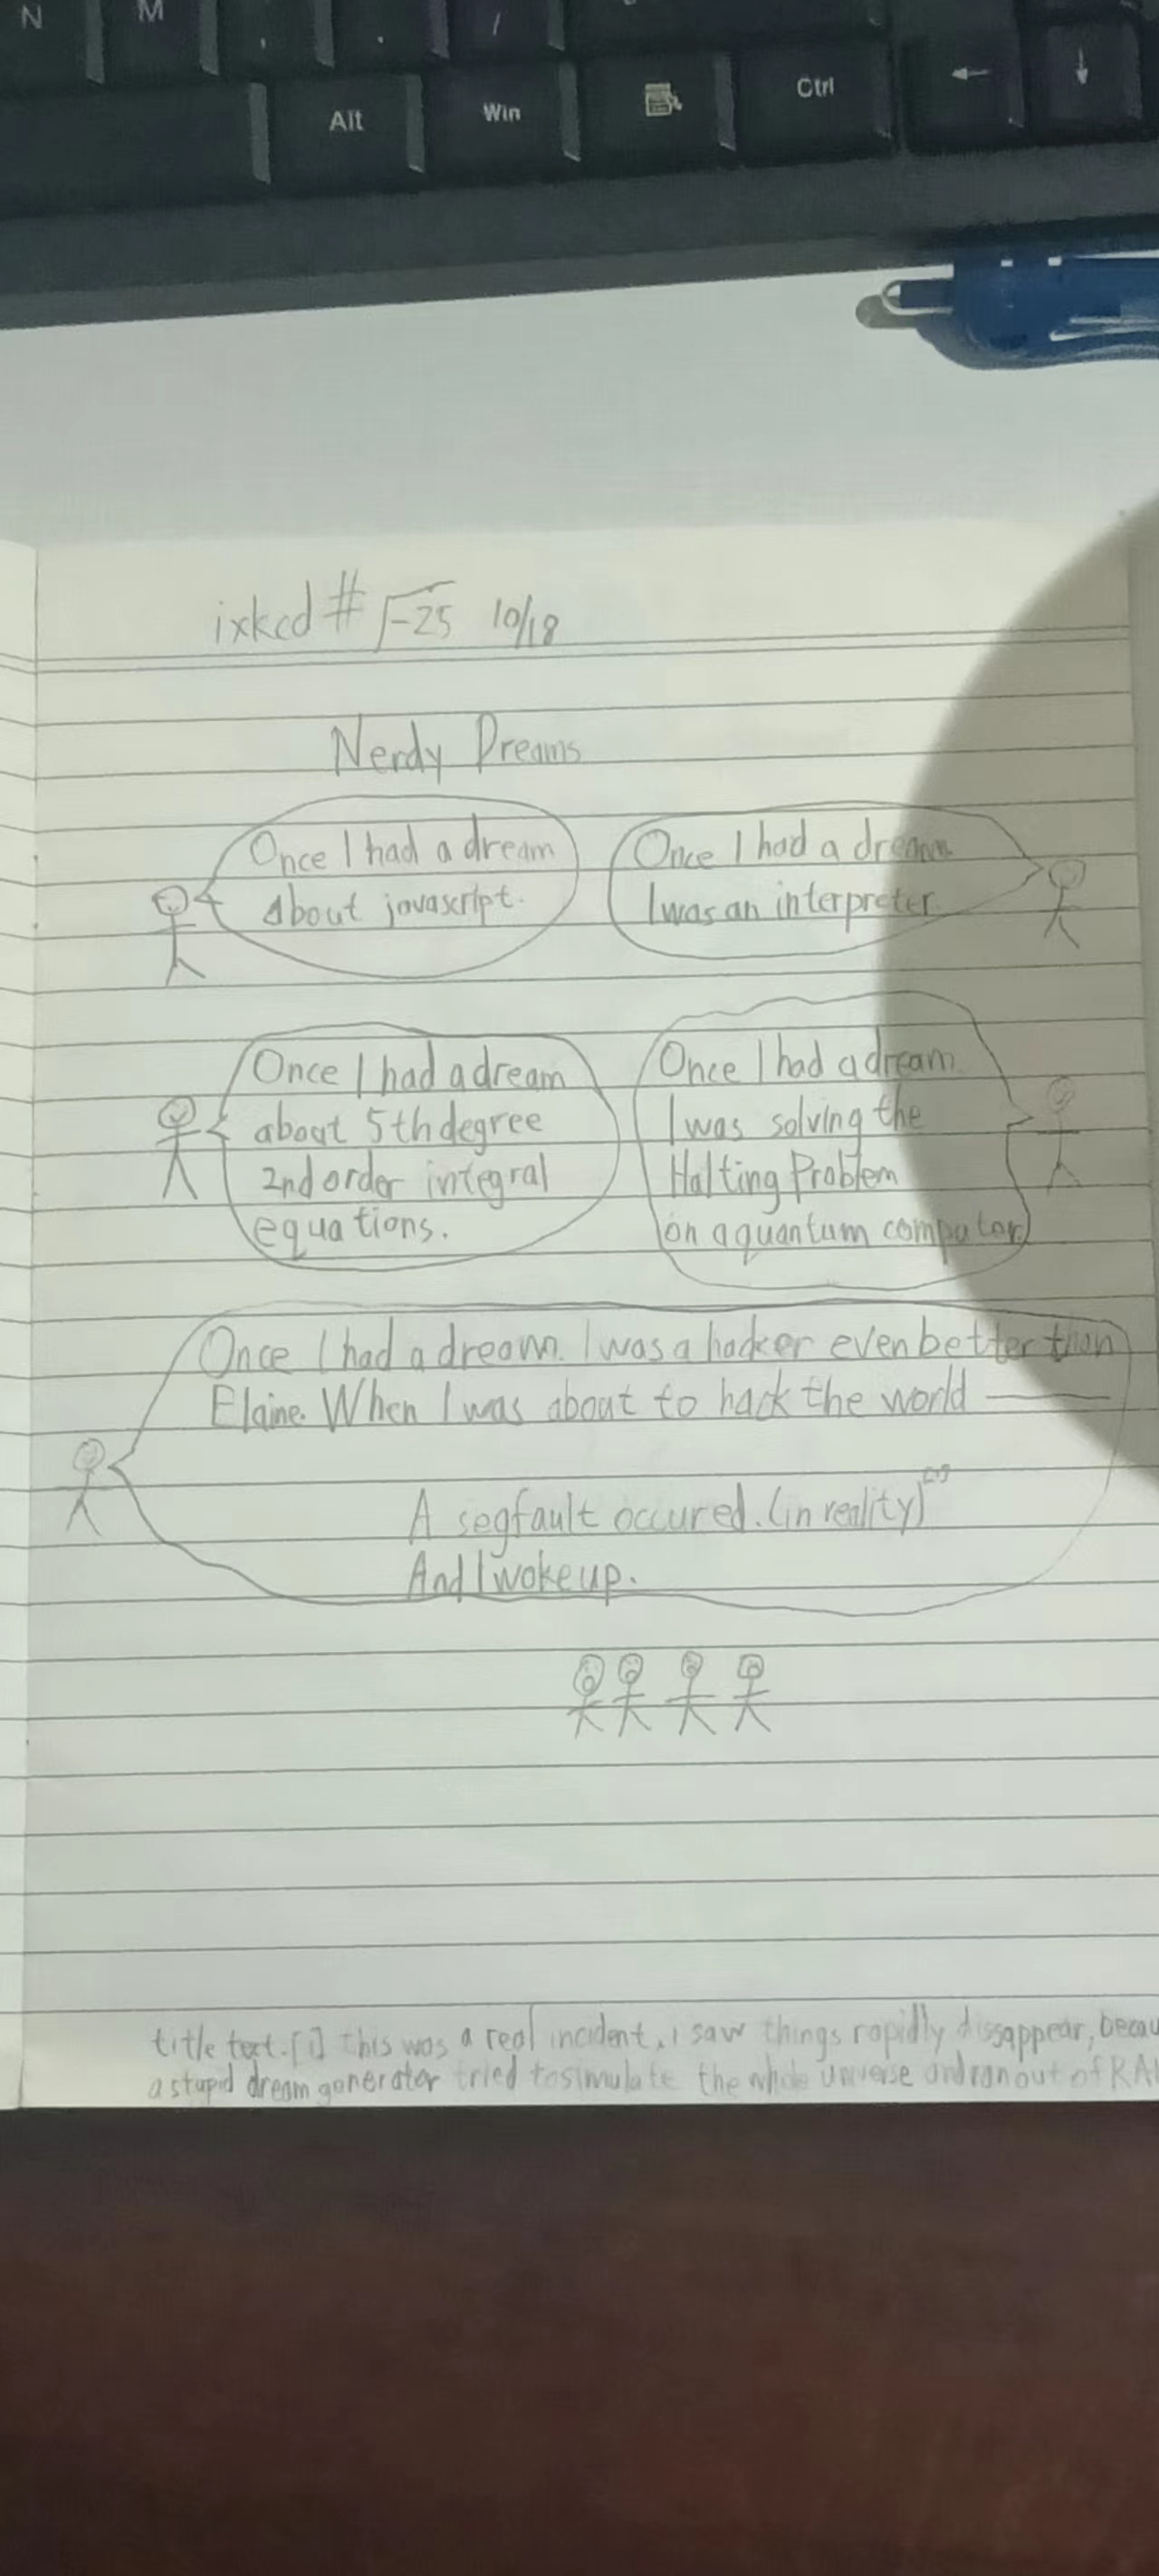 N M , . /
Alt Win Ctrl ← ↓
ixkcd # √-25 10/18
Nerdy Dreams
Once I had a dream
About javascript.
Once I had a dream
I was an interpreter.
Once I had a dream
about 5th degree
2nd order integral
equations.
Once I had a dream
I was solving the
Halting Problem
on a quantum computer
Once I had a dream. I was a hacker even better than
Elaine. When I was about to hack the world ——
A segfault occured. (in reality)
And I woke up.
title text. [i] This was a real incident, i saw things rapidly dissappear, becau
a stupid dream generator tried to simulate the whole universe and ran out of RA